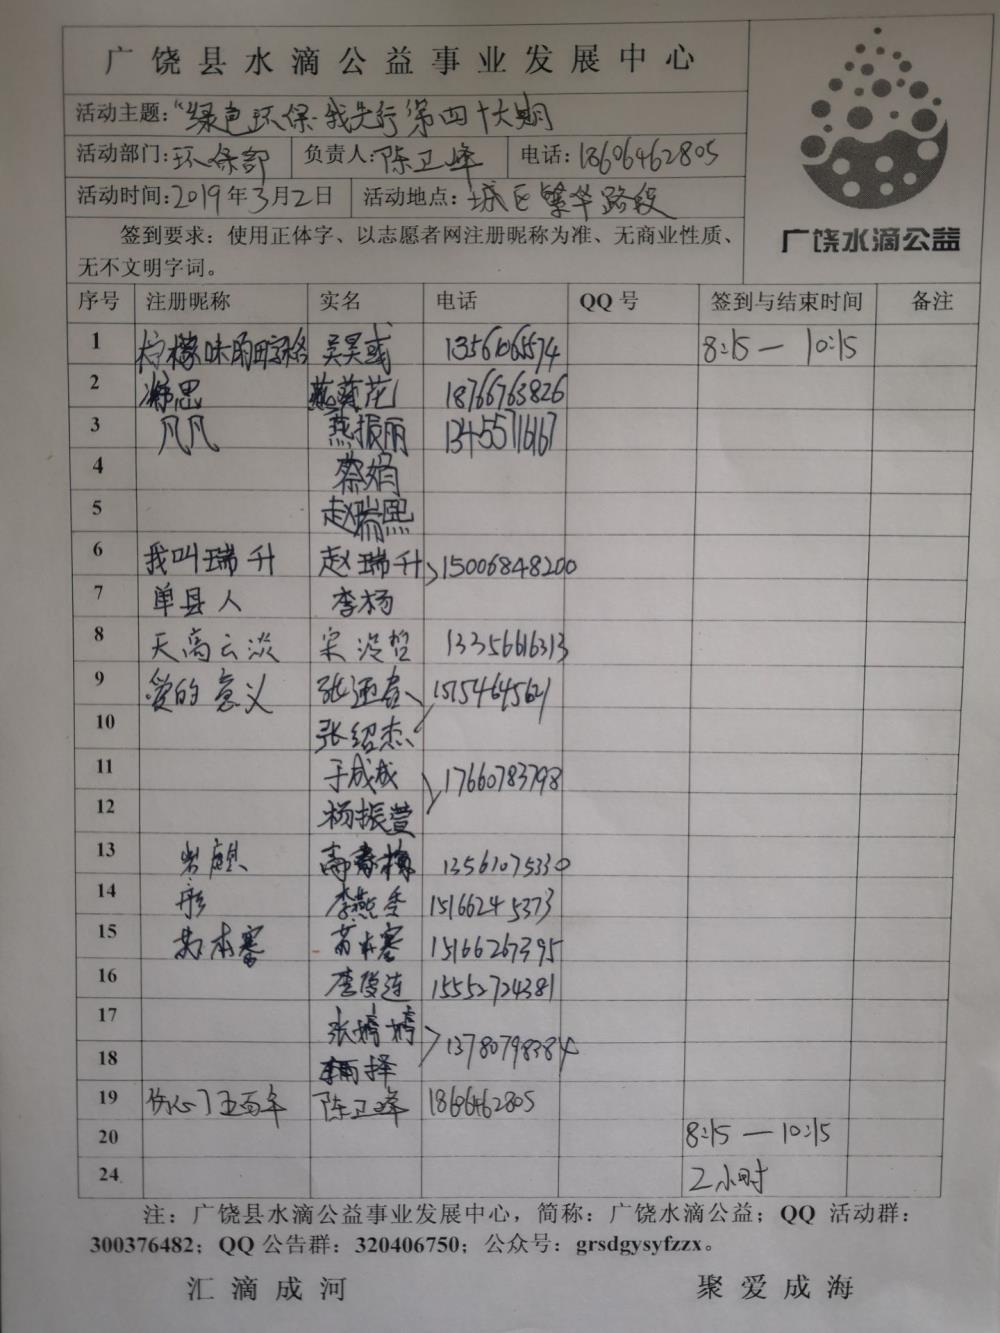 广饶县水滴公益事业发展中心
活动主题:“绿色环保·我先行第四十六期
活动部门:环保部 负责人:陈卫峰 电话:18606462805
活动时间:2019年3月2日 活动地点:城区繁华路段
广饶水滴公益
签到要求：使用正体字、以志愿者网注册昵称为准、无商业性质、
无不文明字词。
序号 注册昵称 实名 电话 QQ号 签到与结束时间 备注
1 柠檬味的田字格 吴昊彧 13561065574 8:15 — 10:15
2 凝思 燕莲花 18766763826
3 凡凡 燕振丽 13455716167
4 蔡娟
5 赵瑞熙
6 我叫瑞升 赵瑞升 15006848200
7 单县人 李杨
8 天高云淡 宋 13356616313
9 爱的意义 张 15154645621
10 张绍杰
11 于成成 17660783798
12 杨振萱
13 高春梅 13561075330
14 彤 李燕 15166245373
15 苏本寒 苏本寒 15166267395
16 李俊连 15552724381
17 张婷婷 13780798384
18 择
19 伤心了五百年 陈卫峰 18606462805
20 8:15 — 10:15
24 2小时
注：广饶县水滴公益事业发展中心，简称：广饶水滴公益；QQ 活动群：
300376482；QQ 公告群：320406750；公众号：grsdgysyfzzx。
汇滴成河 聚爱成海